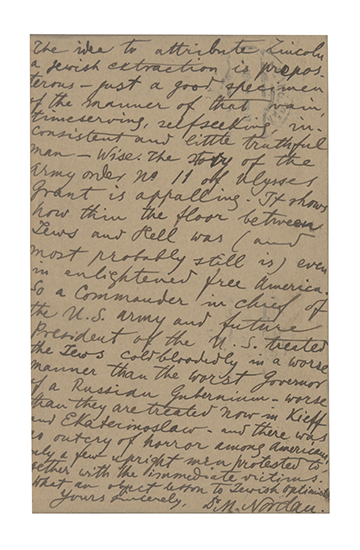 The idea to attribute Lincoln
a Jewish extraction is prepos-
terous – just a good specimen
of the manner of that vain,
timeserving, selfseeking, in-
consistent and little truthful
man – Wise. The story of the
Army order No 11 of Ulysses
Grant is appalling. It shows
how thin the floor between
Jews and Hell was (and
most probably still is) even
in enlightened free America.
So a Commander in chief of
the U.S. army and future
President of the U.S. treated
the Jews coldbloodedly in a worse
manner than the worst Governor
of a Russian Gubernium – worse
than they are treated now in Kieff
and Ekaterinoslaw – and there was
no outcry of horror among americans,
only a few upright men protested to-
gether with the immediate victims.
What an object lesson to Jewish optimists
Yours Sincerely, Dr M. Nordau.